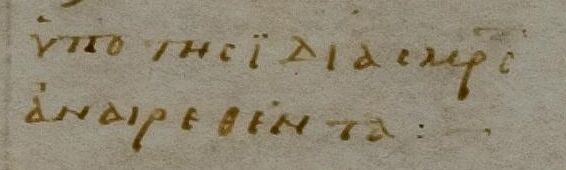 ὑπο της ϊδιας μρ̅ς
ἀναιρεθέντα :